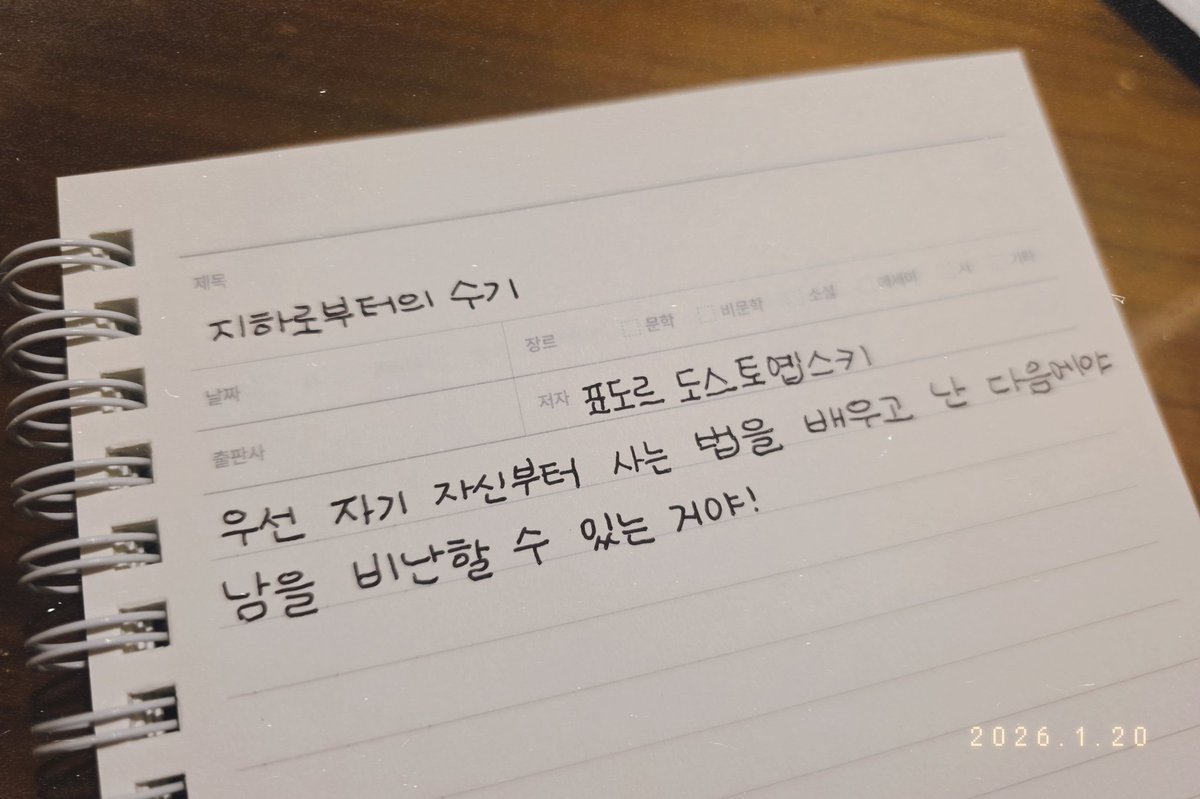 제목
지하로부터의 수기
장르 문학 비문학 소설 에세이 시 기타
날짜
저자 표도르 도스토옙스키
출판사
우선 자기 자신부터 사는 법을 배우고 난 다음에야
남을 비난할 수 있는 거야!
2026.1.20